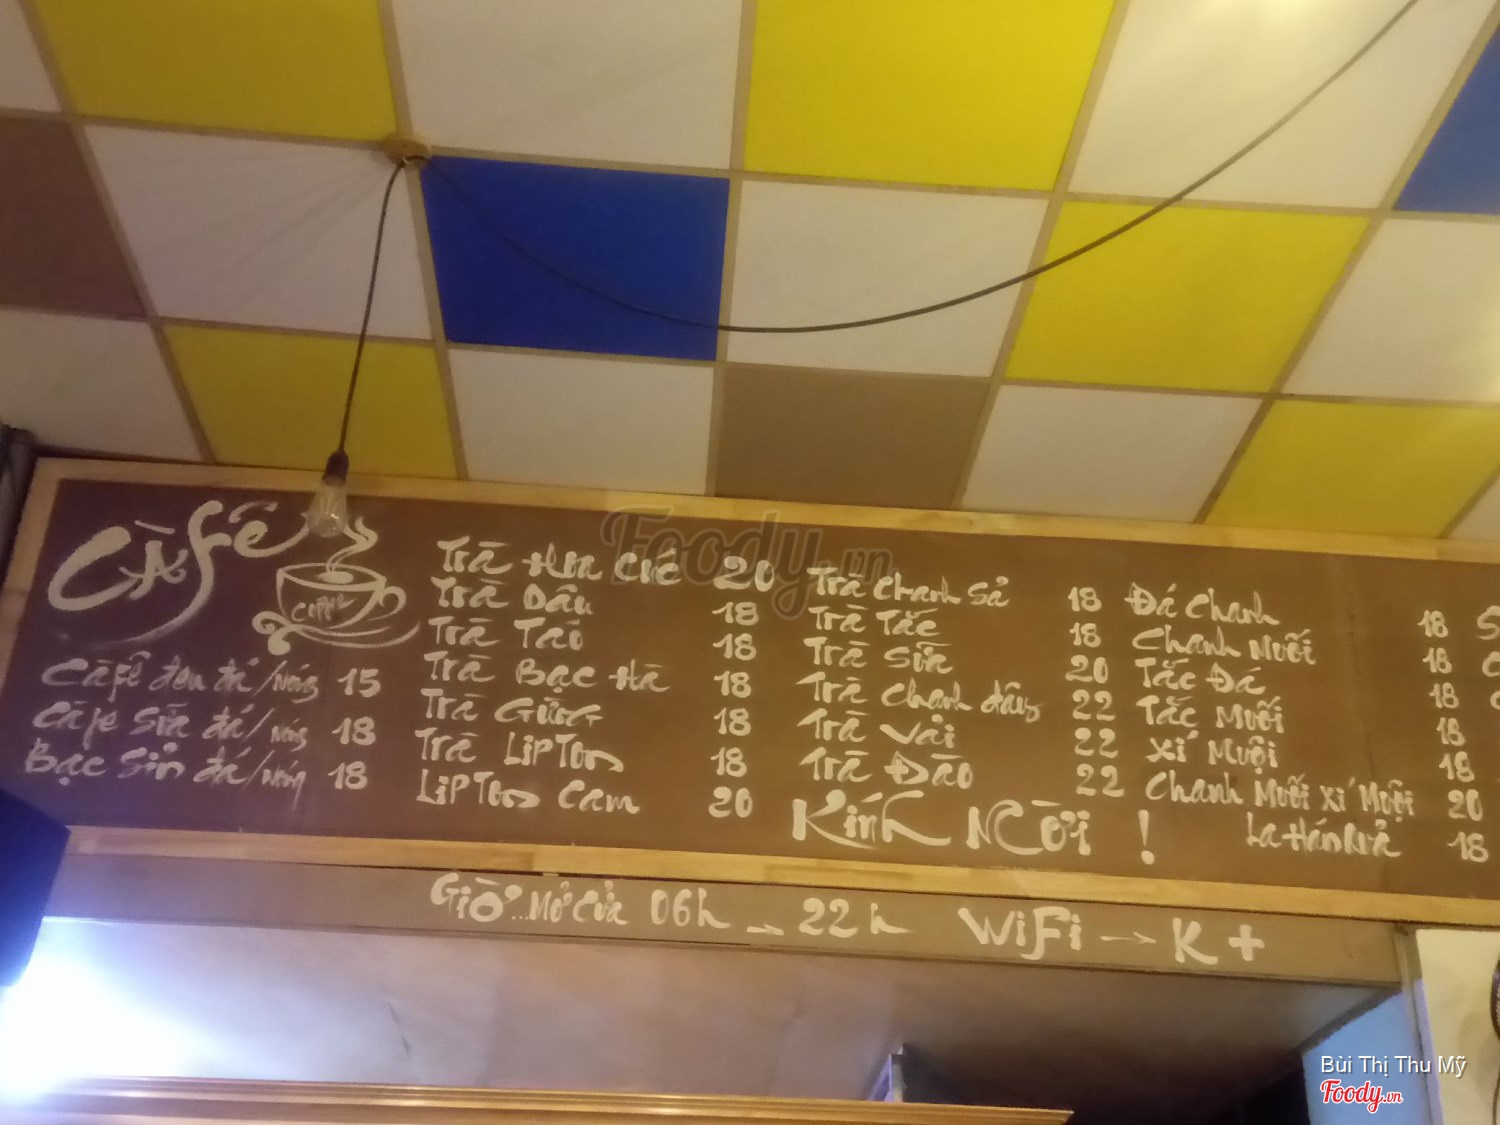 Càfê
COFFEE
Càfê đen đá/nóng 15
Càfé sữa đá/nóng 18
Bạc sỉu đá/nóng 18
Trà Hoa Cúc 20
Trà Dâu 18
Trà Táo 18
Trà Bạc Hà 18
Trà Gừng 18
Trà LipTon 18
LipTon Cam 20
Trà Chanh Sả 18
Trà Tắc 18
Trà Sữa 20
Trà Chanh dây 22
Trà Vải 22
Trà Đào 22
Kính Mời !
Đá Chanh 18
Chanh Muối 18
Tắc Đá 18
Tắc Muối 18
Xí Muội 18
Chanh Muối Xí Muội 20
La Hán Quả 18
Giờ...Mở Cửa 06h - 22h WiFi → K+
Foody.vn
Bùi Thị Thu Mỹ
Foody.vn